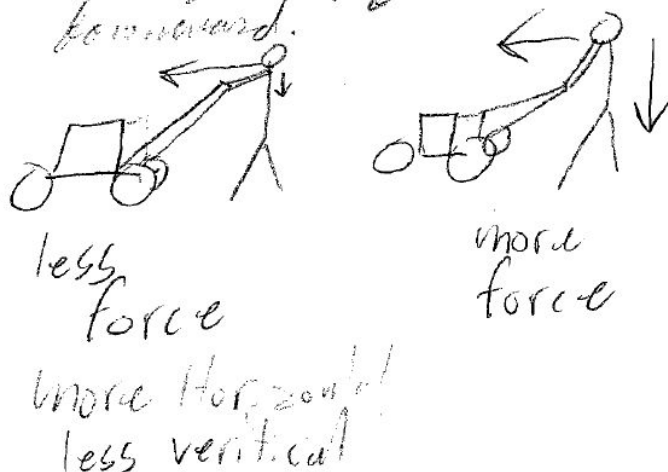 downward.
less
force
more
force
more Horizontal
less veritical